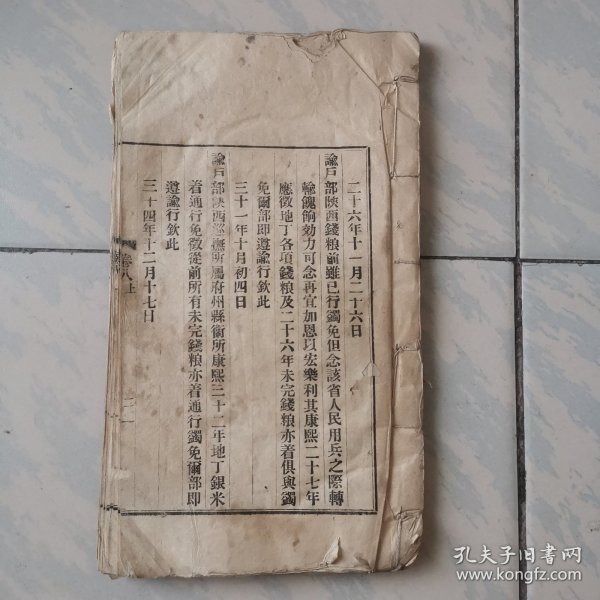 二十六年十一月二十六日
諭戶部陝西錢粮前雖已行蠲免但念該省人民用兵之際轉
輸餽餉効力可念再宜加恩以宏樂利其康熙二十七年
應徵地丁各項錢粮及二十六年未完錢粮亦着俱與蠲
免爾部即遵諭行欽此
三十一年十月初四日
諭戶部陝西巡撫所屬府州縣衛所康熙三十二年地丁銀米
着通行免徵從前所有未完錢粮亦着通行蠲免爾部即
遵諭行欽此
三十四年十二月十七日
卷八上
孔夫子旧書网
www.kongfz.com